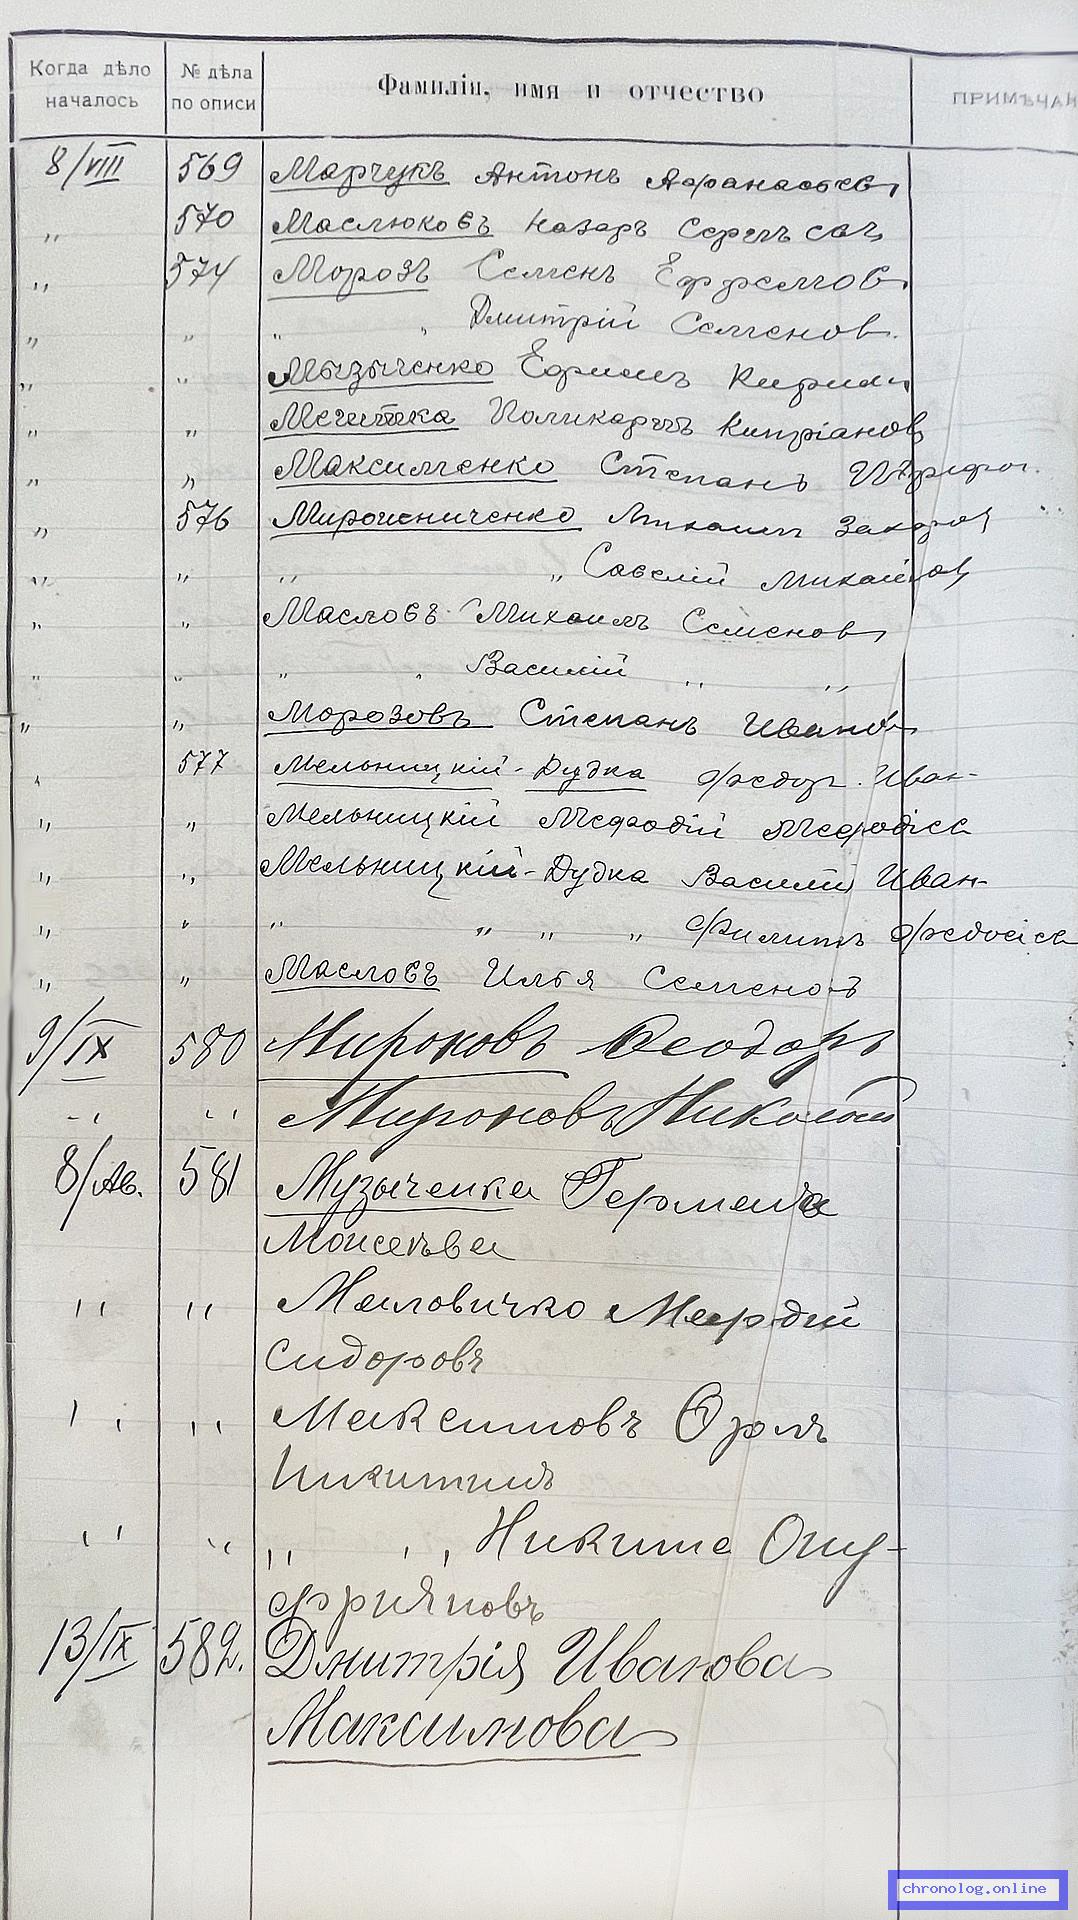 Когда дѣло началось
№ дѣла по описи
Фамилія, имя и отчество
ПРИМѢЧАН
8/VIII 569 Марчукъ Антонъ Афанасьев
„ 570 Маслюковъ Назаръ
„ 574 Морозъ Семенъ Ефремов
„ „ „ „ Дмитрій Семенов.
„ „ Мызыченко Ефимъ Кирил
„ „ Поликарпъ Кипріанов
„ „ Максимченко Степанъ
„ 576 Мирошниченко Михаилъ Захаров
„ „ „ „ Савелій Михайлов
„ „ Масловъ Михаилъ Семенов
„ „ „ „ Василій „ „
„ „ Морозовъ Степанъ Иванов
„ 577 Мельницкій-Дудка Федор. Иван-
„ „ Мельницкій Мефодій Мефодіев
„ „ Мельницкій-Дудка Василій Иван-
„ „ „ „ „ „ Филипъ Федосіев
„ „ Масловъ Илья Семеновъ
9/IX 580 Мироновъ Феодоръ
„ „ Мироновъ Николай
8/Ав. 581 Музыченка Германа
Моисеева
„ „ Маловичко Мефодій
Сидоровъ
„ „ Максимовъ Фролъ
Никитинъ
„ „ „ „ Никита Ону-
фріяновъ
13/IX 582. Дмитрія Иванова
Максимова
chronolog.online